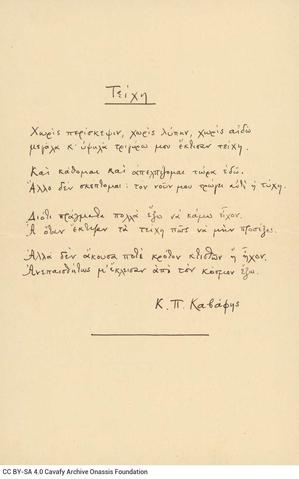 Τείχη
Χωρίς περίσκεψιν, χωρίς λύπην, χωρίς αιδώ
μεγάλα κ' υψηλά τριγύρω μου έκτισαν τείχη.
Και κάθομαι και απελπίζομαι τώρα εδώ.
Άλλο δεν σκέπτομαι: τον νουν μου τρώγει αυτή η τύχη.
Διότι πράγματα πολλά έξω να κάμω είχον.
Α όταν έκτιζαν τα τείχη πώς να μην προσέξω.
Αλλά δεν άκουσα ποτέ κρότον κτιστών ή ήχον.
Ανεπαισθήτως μ' έκλεισαν από τον κόσμον έξω.
Κ. Π. Καβάφης
CC BY-SA 4.0 Cavafy Archive Onassis Foundation